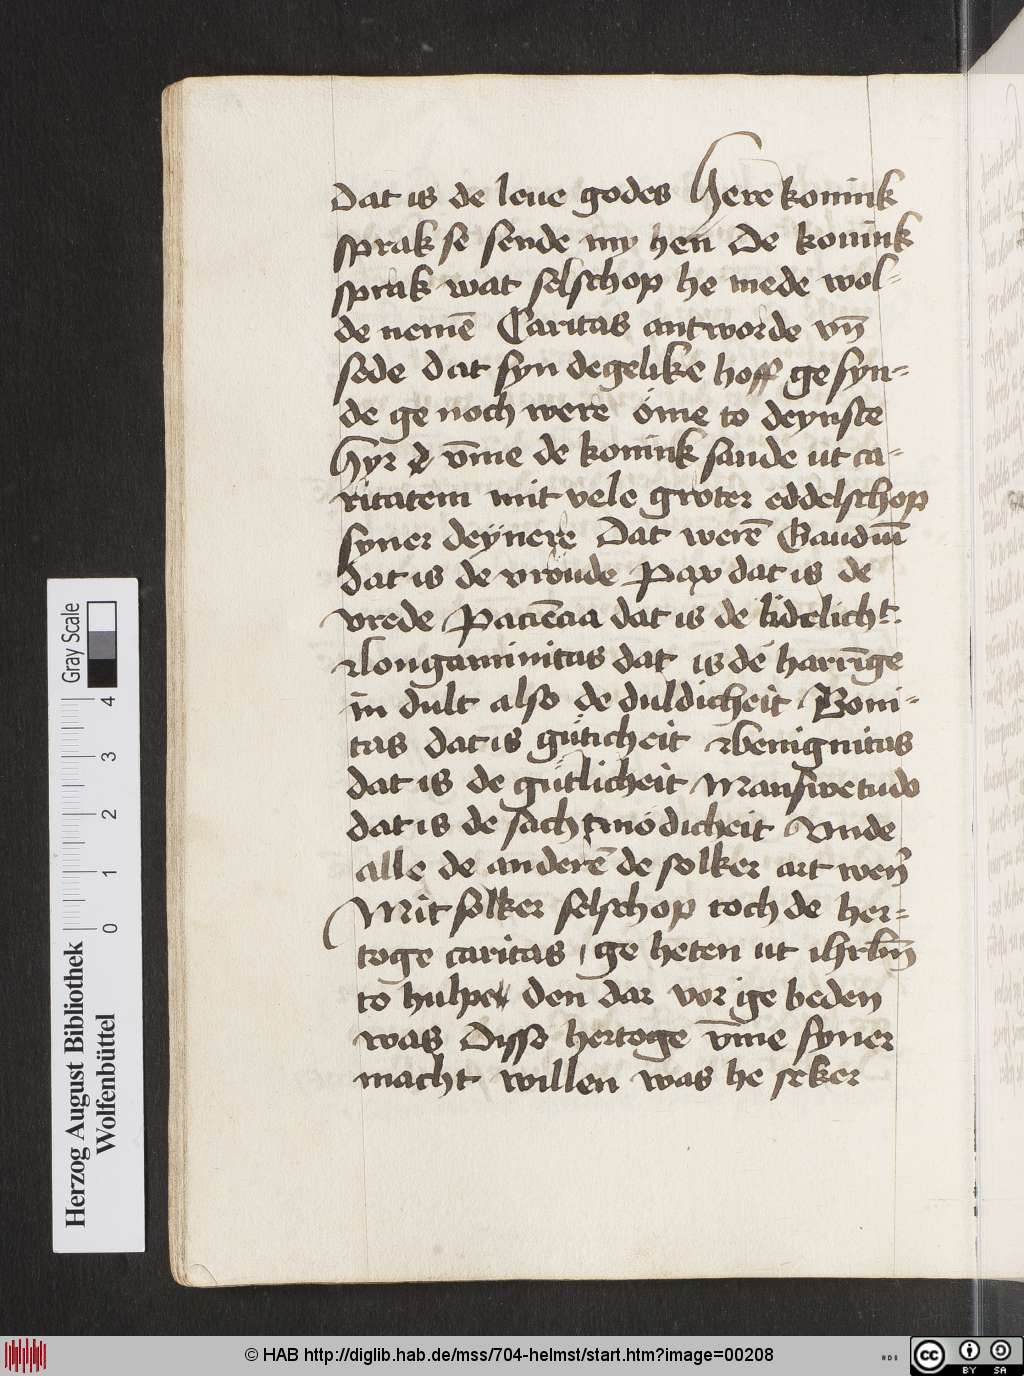 Dat is de leue godes Here konink
sprak se sende my hen De konink
sprak wat selschop he mede wol-
de nemē Caritas antworde vn̄
sede dat syn degelike hoff gesyn-
de ge noch were öme to deynste
Hyr v̄me de konink sande ut ca-
ritatem mit vele groter eddelschop
syner deynere Dat werē Gaudiū
dat is de vroude Pax dat is de
vrede Paciēcia dat is de lidelicht.
longaminitas dat is de harrīge
in dult also de duldicheit Boni-
tas dat is guticheit benignitas
dat is de gutlicheit Manswetudo
dat is de sachtmodicheit Vnde
alle de anderē de solker art wen̄
Mit solker selschop toch de her-
toge caritas, ge heten ut ihrlm̄
to hulpe den dar vor ge beden
was Disse hertoge v̄me syner
macht willen was he seker
Gray Scale
4
3
2
1
0
Herzog August Bibliothek
Wolfenbüttel
© HAB http://diglib.hab.de/mss/704-helmst/start.htm?image=00208
cc BY SA